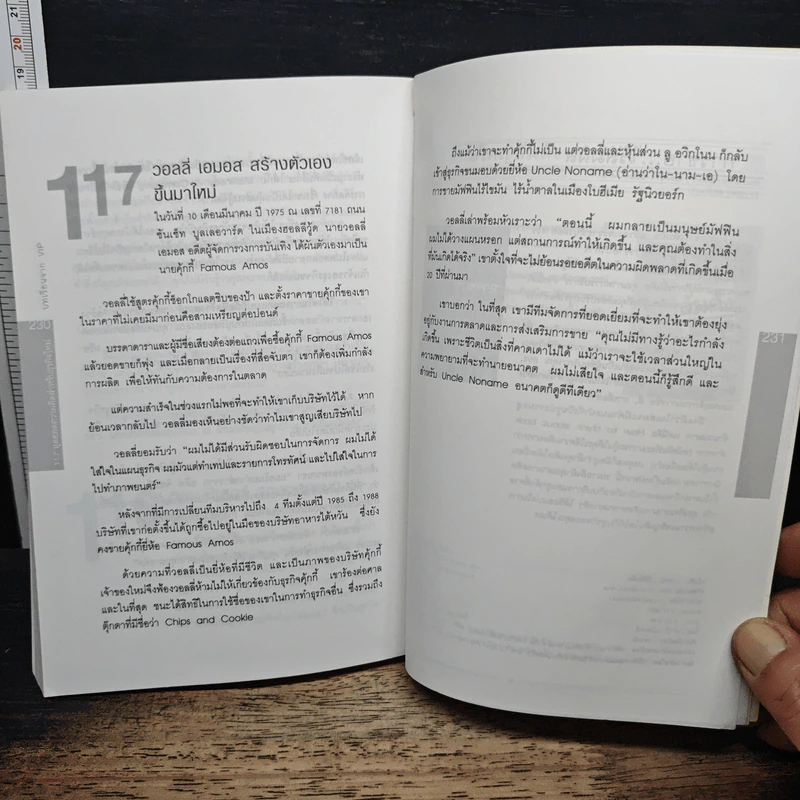 21
20
19
117
วอลลี่ เอมอส สร้างตัวเอง
ขึ้นมาใหม่
ในวันที่ 10 เดือนมีนาคม ปี 1975 ณ เลขที่ 7181 ถนน
ซันเซ็ท บูลเลอวาร์ด ในเมืองฮอลลีวู้ด นายวอลลี่
เอมอส อดีตผู้จัดการวงการบันเทิง ได้ผันตัวเองมาเป็น
นายคุ้กกี้ Famous Amos
วอลลี่ใช้สูตรคุ้กกี้ช็อกโกแลตชิบของป้า และตั้งราคาขายคุ้กกี้ของเขา
ในราคาที่ไม่เคยมีมาก่อนคือสามเหรียญต่อปอนด์
บรรดาดาราและผู้มีชื่อเสียงต้องต่อแถวเพื่อซื้อคุ้กกี้ Famous Amos
แล้วยอดขายก็พุ่ง และเมื่อกลายเป็นเรื่องที่สื่อจับตา เขาก็ต้องเพิ่มกำลัง
การผลิต เพื่อให้ทันกับความต้องการในตลาด
แต่ความสำเร็จในช่วงแรกไม่พอที่จะทำให้เขาเก็บบริษัทไว้ได้ : หาก
ย้อนเวลากลับไป วอลลี่มองเห็นอย่างชัดว่าทำไมเขาสูญเสียบริษัทไป
วอลลี่ยอมรับว่า "ผมไม่ได้มีส่วนรับผิดชอบในการจัดการ ผมไม่ได้
ใส่ใจในแผนธุรกิจ ผมมัวแต่ทำเทปและรายการโทรทัศน์ และไปใส่ใจในการ
ไปทำภาพยนตร์"
หลังจากที่มีการเปลี่ยนทีมบริหารไปถึง 4 ทีมตั้งแต่ปี 1985 ถึง 1988
บริษัทที่เขาก่อตั้งขึ้นได้ถูกซื้อไปอยู่ในมือของบริษัทอาหารไต้หวัน ซึ่งยัง
คงขายคุ้กกี้ยี่ห้อ Famous Amos
ด้วยความที่วอลลี่เป็นยี่ห้อที่มีชีวิต และเป็นภาพของบริษัทคุ้กกี้
เจ้าของใหม่จึงฟ้องวอลลี่ห้ามไม่ให้เกี่ยวข้องกับธุรกิจคุ้กกี้ เขาร้องต่อศาล
และในที่สุด ชนะได้สิทธิในการใช้ชื่อของเขาในการทำธุรกิจอื่น ซึ่งรวมถึง
ตุ๊กตาที่มีชื่อว่า Chips and Cookie
บทเรียนจาก VIP
230
ถึงแม้ว่าเขาจะทำคุ้กกี้ไม่เป็น แต่วอลลี่และหุ้นส่วน ลู อวิกโนน ก็กลับ
เข้าสู่ธุรกิจขนมอบด้วยยี่ห้อ Uncle Noname (อ่านว่าโน-นาม-เอ) โดย
การขายมัฟฟินไร้ไขมัน ไร้น้ำตาลในเมืองโบฮีเมีย รัฐนิวยอร์ก
วอลลี่เล่าพร้อมหัวเราะว่า "ตอนนี้ ผมกลายเป็นมนุษย์มัฟฟิน
ผมไม่ได้วางแผนหรอก แต่สถานการณ์ทำให้เกิดขึ้น และคุณต้องทำในสิ่ง
ที่มันเกิดได้จริง" เขาตั้งใจที่จะไม่ย้อนรอยอดีตในความผิดพลาดที่เกิดขึ้นเมื่อ
20 ปีที่ผ่านมา
เขาบอกว่า ในที่สุด เขามีทีมจัดการที่ยอดเยี่ยมที่จะทำให้เขาต้องยุ่ง
อยู่กับงานการตลาดและการส่งเสริมการขาย "คุณไม่มีทางรู้ว่าอะไรกำลัง
เกิดขึ้น เพราะชีวิตเป็นสิ่งที่คาดเดาไม่ได้ แม้ว่าเราจะใช้เวลาส่วนใหญ่ใน
ความพยายามที่จะทำนายอนาคต ผมไม่เสียใจ และตอนนี้ก็รู้สึกดี และ
สำหรับ Uncle Noname อนาคตก็ดูดีทีเดียว"
231